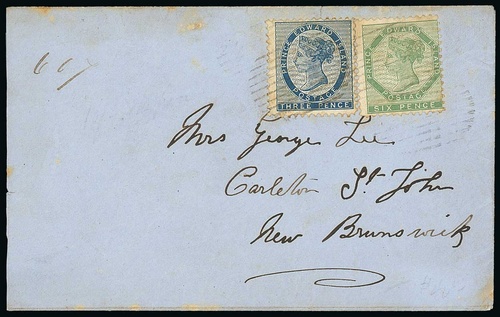 PRINCE EDWARD ISLAND
POSTAGE
THREE PENCE
PRINCE EDWARD ISLAND
POSTAGE
SIX PENCE
Mrs George Lee
Carleton St. John
New Brunswick